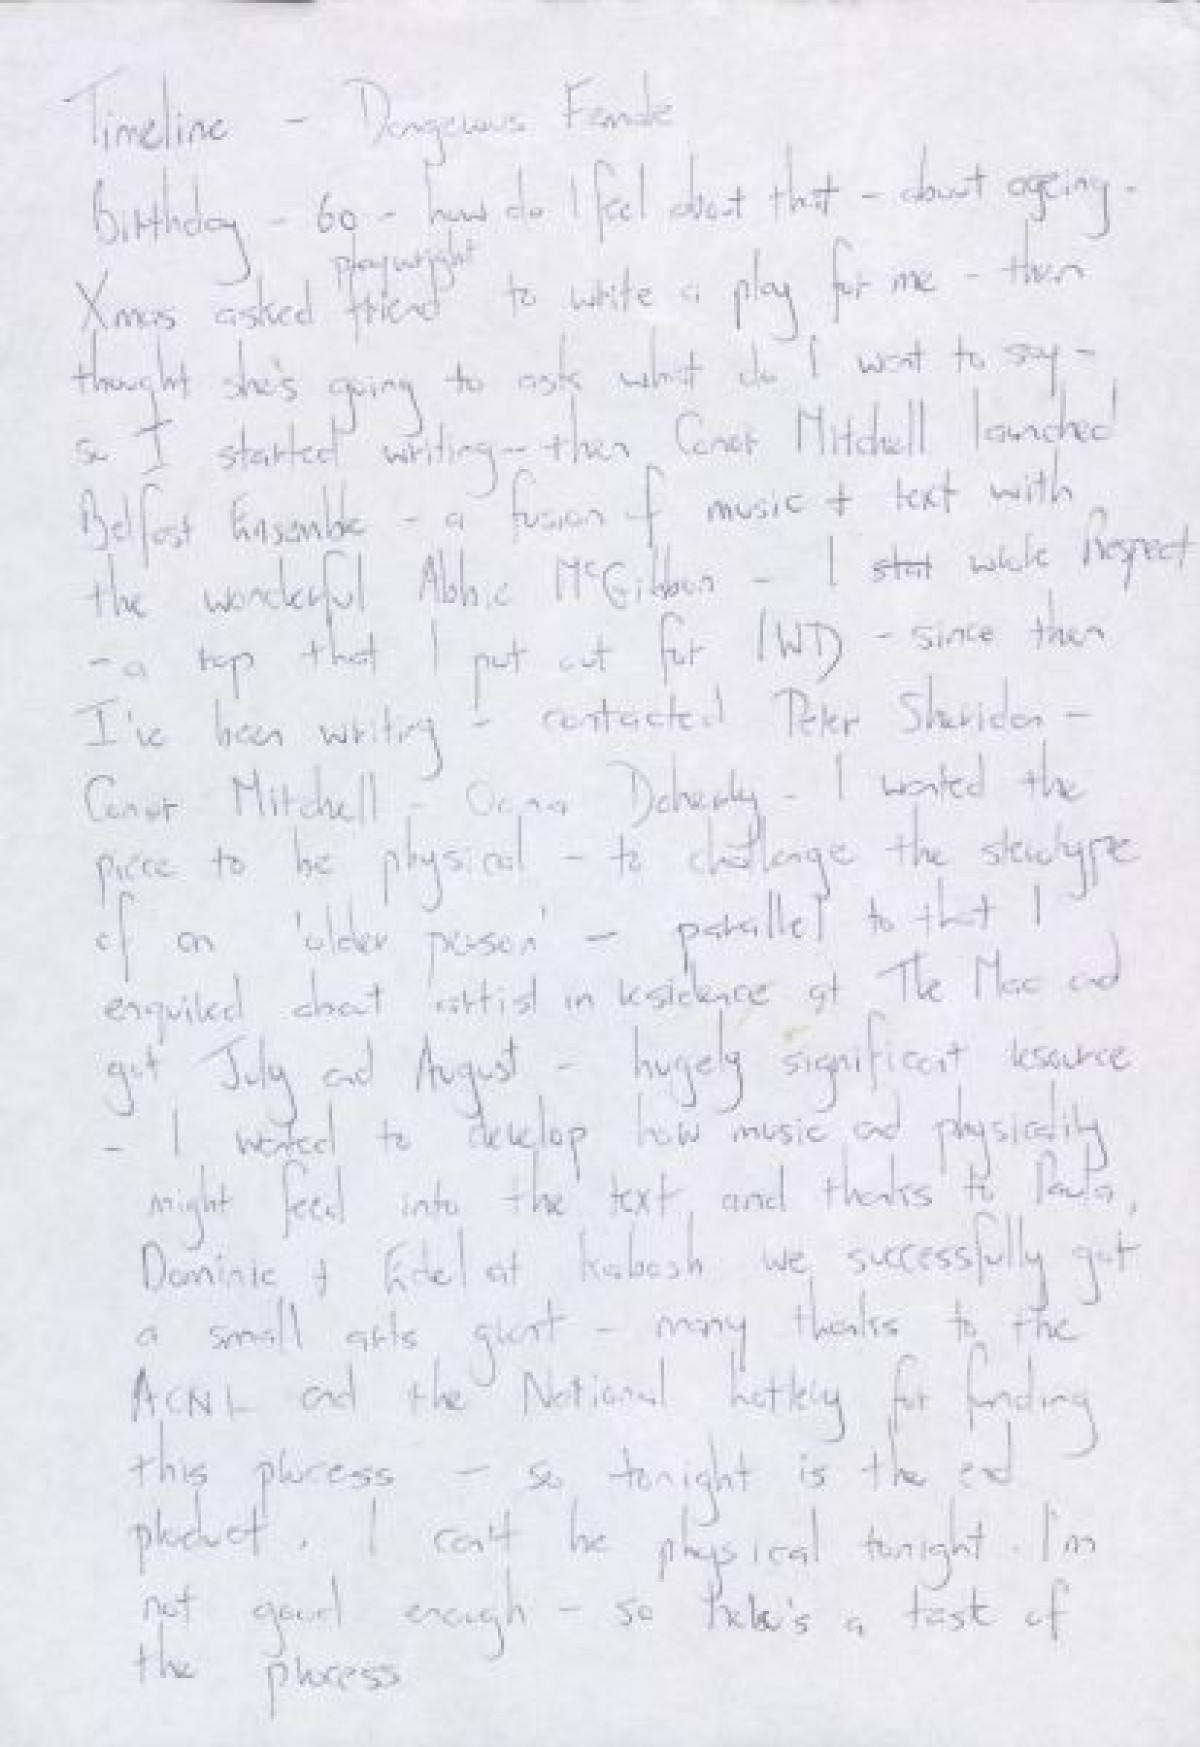 Timeline - Dangerous Female
Birthday - 60 - how do I feel about that - about ageing -
playwright
Xmas asked friend to write a play for me - then
thought she's going to ask what do I want to say -
so I started writing - then Conor Mitchell launched
Belfast Ensemble - a fusion of music + text with
the wonderful Abbie McGibbon - I start wrote Respect
- a rap that I put out for IWD - since then
I've been writing - contacted Peter Sheridan -
Conor Mitchell - Oona Doherty - I wanted the
piece to be physical - to challenge the sterotype
of an 'older person' - parallel to that I
enquired about artist in residence at The Mac and
got July and August - hugely significant resource
- I wanted to develop how music and physicality
might feed into the text and thanks to Paula,
Dominic + Edel at Kabosh we successfully got
a small arts grant - many thanks to the
ACNI and the National Lottery for funding
this process - so tonight is the end
product. I can't be physical tonight. I'm
not good enough - so here's a taste of
the process